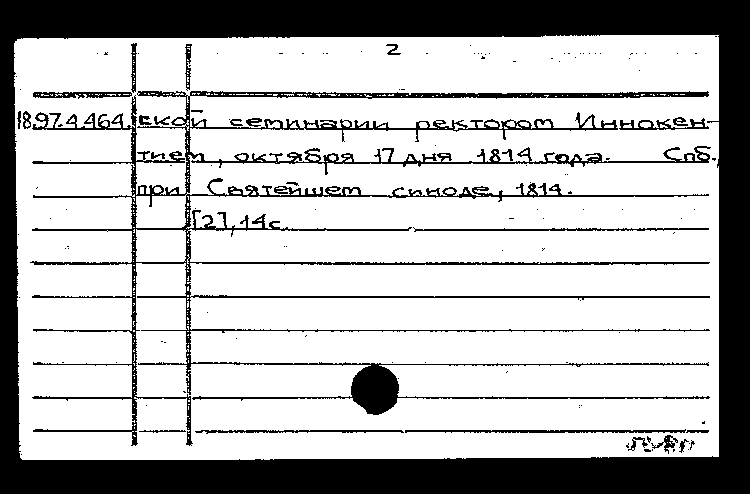 2
18.97.4.464. ской семинарии ректором Иннокен-
тием, октября 17 дня 1814 года. Спб.,
при Святейшем синоде, 1814.
[2], 14 с.